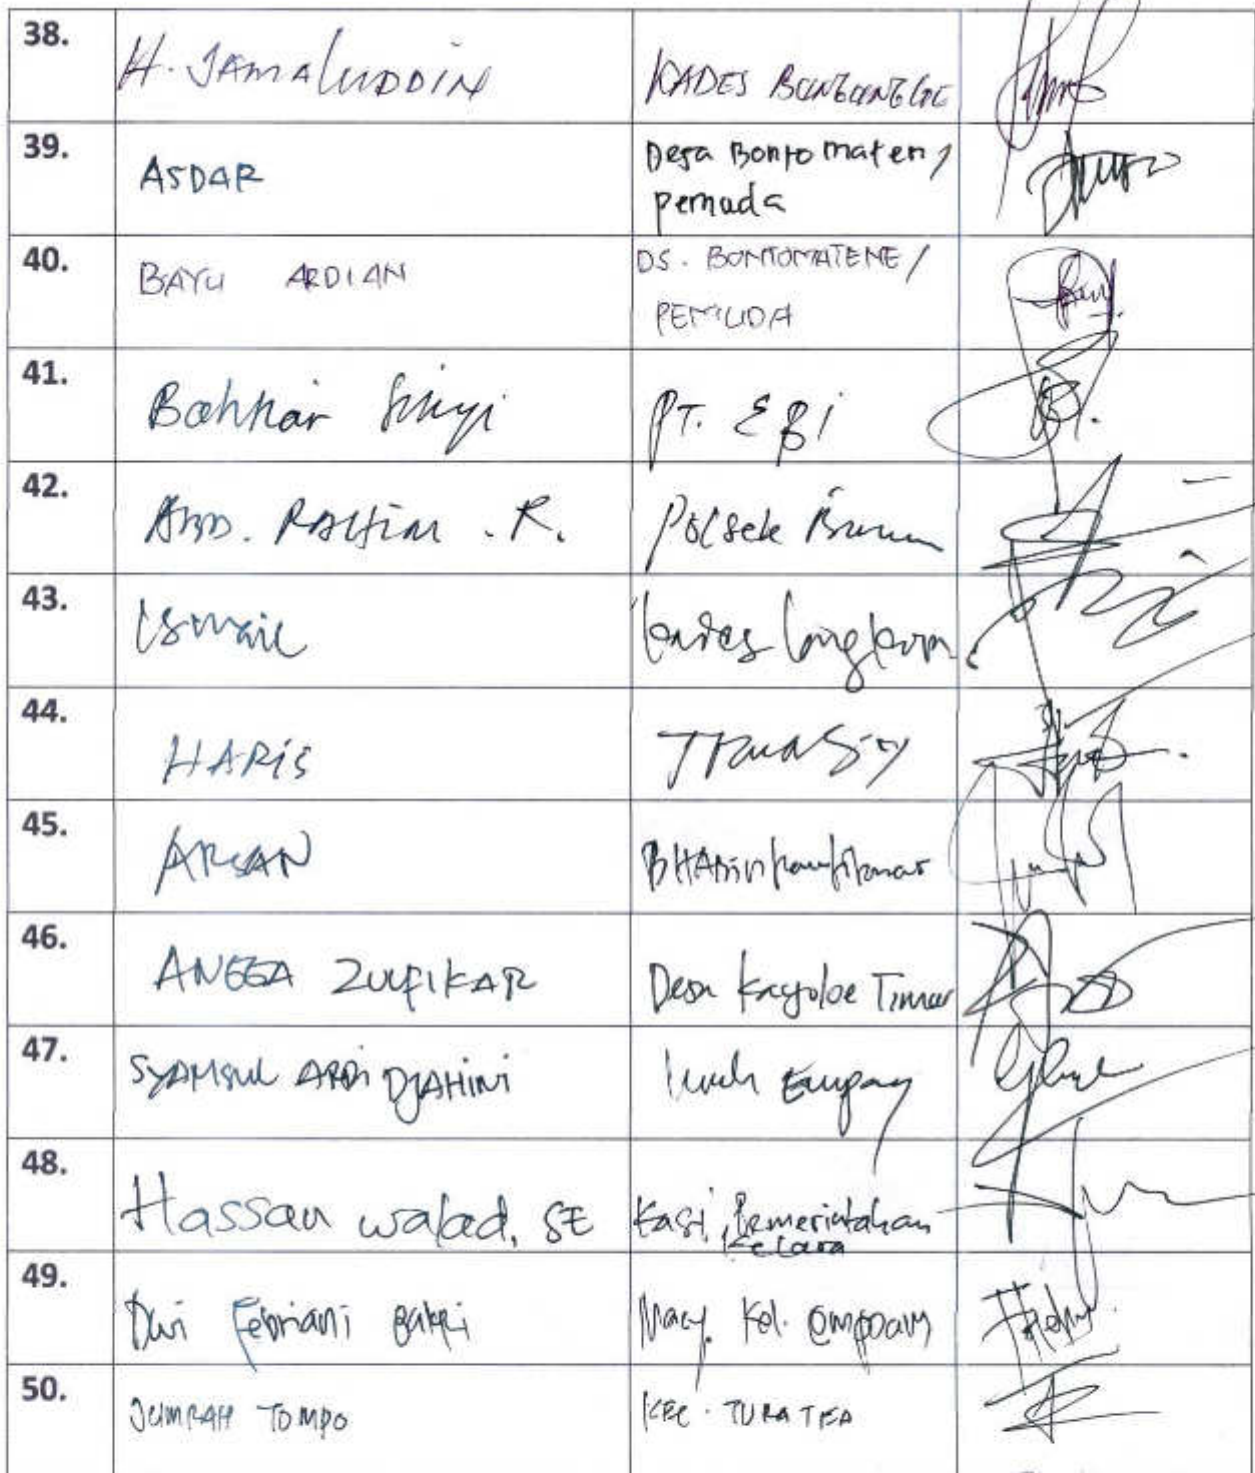 38.
H. JAMALUDDIN
KADES
39.
ASDAR
Desa Bontomaten /
pemuda
40.
BAYU ARDIAN
DS. BONTOMATENE /
PEMUDA
41.
Bahhar
PT. EBI
42.
ABD. RAHIM . R.
Polsek
43.
ISMAIL
Kades
44.
HARIS
45.
ARSAN
46.
ANGGA ZULFIKAR
Desa Kayuloe Timur
47.
SYAMSUL ARDI DJAHINI
Lurah Empoang
48.
Hassan walad, SE
Kasi Pemerintahan
Kelara
49.
Dwi Febriani Bakri
Masy. Kel. Empoang
50.
JUMRAH TOMPO
KEC. TURATEA